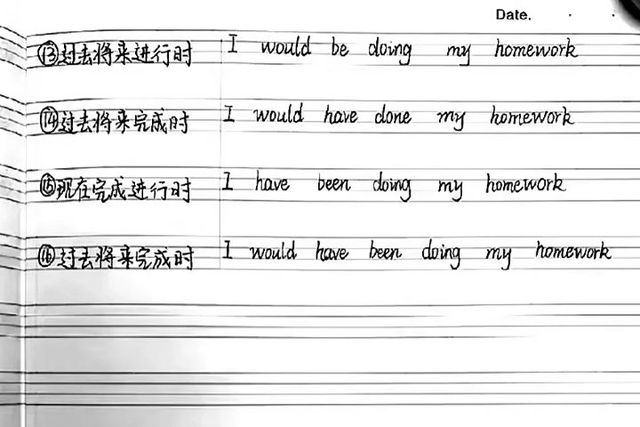 Date. · ·
⑬过去将来进行时 I would be doing my homework
⑭过去将来完成时 I would have done my homework
⑮现在完成进行时 I have been doing my homework
⑯过去将来完成时 I would have been doing my homework